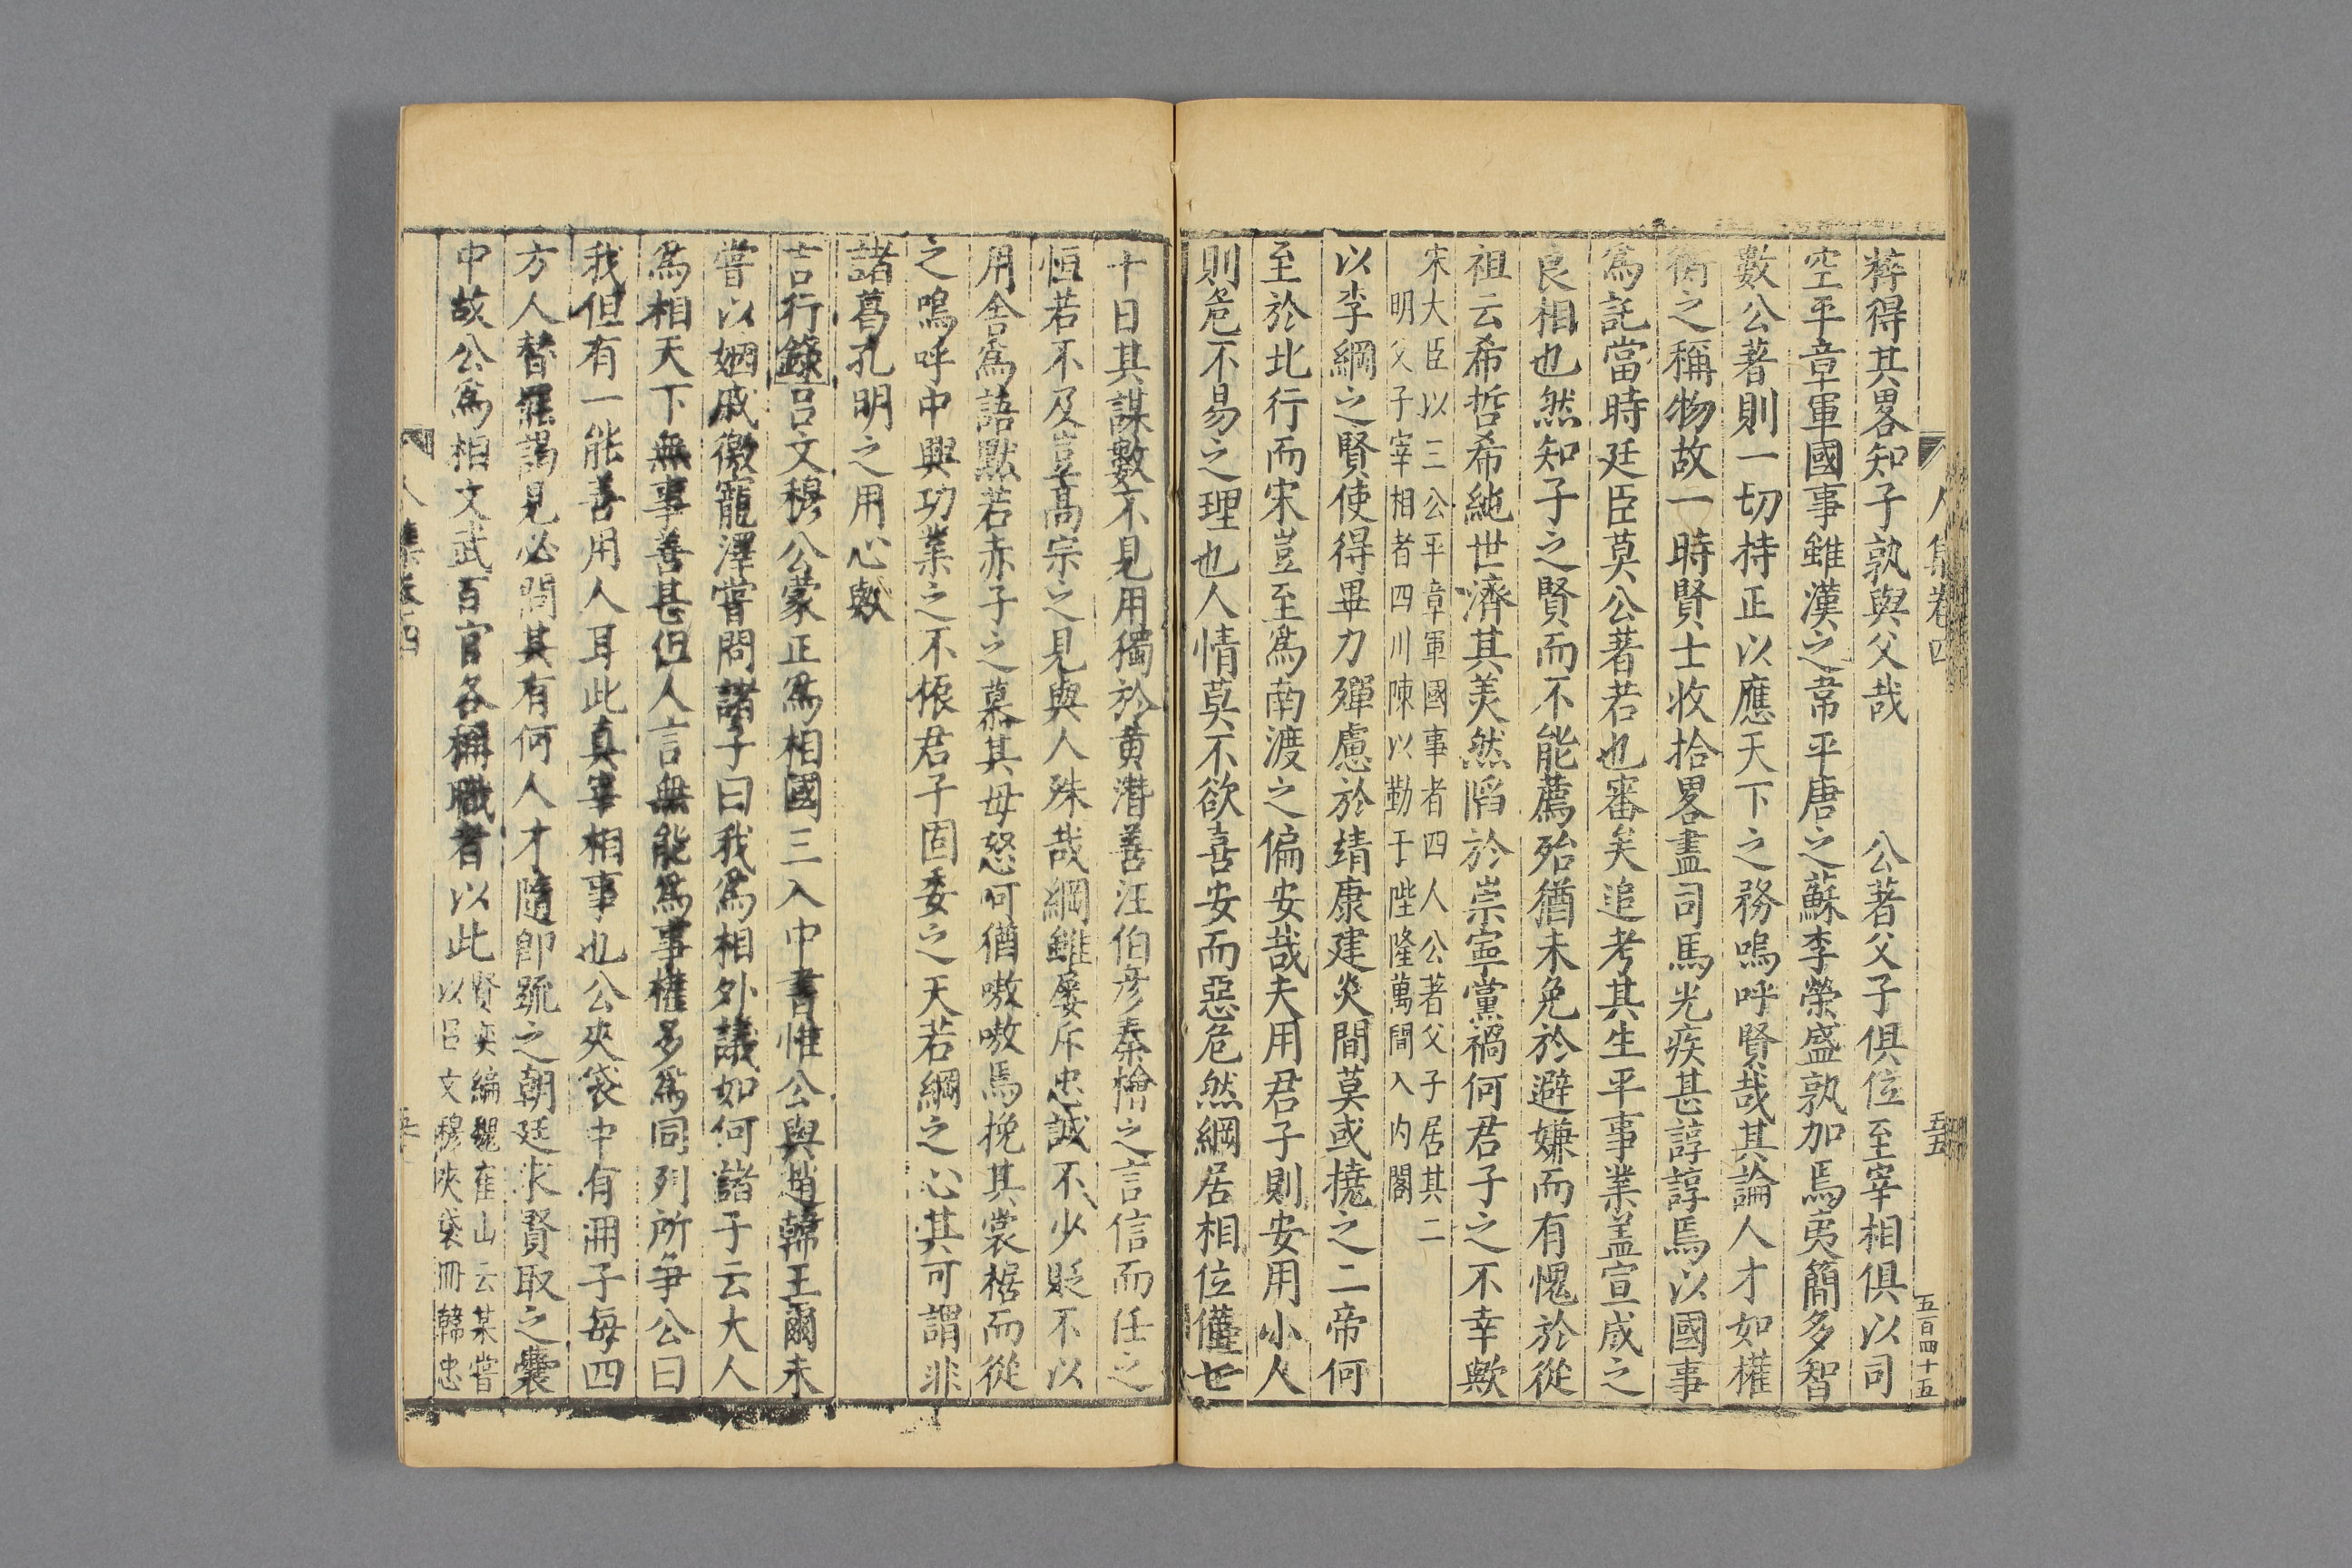 人集卷四 五五 五百四十五
粹得其畧知子孰與父哉 公著父子俱位至宰相俱以司
空平章軍國事雖漢之韋平唐之蘇李榮盛孰加焉夷簡多智
數公著則一切持正以應天下之務嗚呼賢哉其論人才如權
衡之稱物故一時賢士收拾畧盡司馬光疾甚諄諄焉以國事
爲託當時廷臣莫公著若也審矣追考其生平事業盖宣成之
良相也然知子之賢而不能薦殆猶未免於避嫌而有愧於從
祖云希哲希純世濟其美然䧟於崇寧黨禍何君子之不幸歟
宋大臣以三公平章軍國事者四人公著父子居其二
明父子宰相者四川陳以勤于陛隆萬間入內閣
以李綱之賢使得畢力殫慮於靖康建炎間莫或撓之二帝何
至於北行而宋豈至爲南渡之偏安哉夫用君子則安用小人
則危不易之理也人情莫不欲喜安而惡危然綱居相位僅七
十日其謀數不見用獨於黄潛善汪伯彦秦檜之言信而任之
恒若不及豈髙宗之見與人殊哉綱雖屢斥忠誠不少貶不以
用舍爲語默若赤子之慕其母怒呵猶嗷嗷焉挽其裳裾而從
之嗚呼中興功業之不振君子固委之天若綱之心其可謂非
諸葛孔明之用心歟
言行錄呂文穆公蒙正爲相國三入中書惟公與趙韓王爾未
嘗以姻戚徼寵澤嘗問諸子曰我爲相外議如何諸子云大人
爲相天下無事善甚但人言無能爲事權多爲同列所爭公曰
我但有一能善用人耳此真宰相事也公夾袋中有冊子每四
方人替罷謁見必問其有何人才隨卽疏之朝廷求賢取之囊
中故公爲相文武百官各稱職者以此
賢奕編魏隺山云某嘗
以呂文穆夾袋冊韓忠
人集卷四